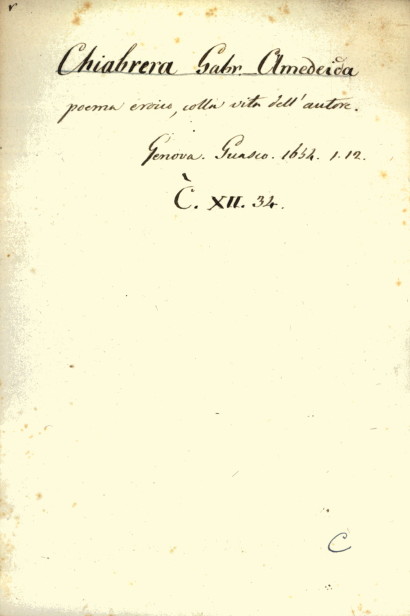 Chiabrera Gabr. Amedeida
poema eroico, colla vita dell'autore.
Genova. Guasco. 1654. 1. 12.
C̀. XII. 34.
C